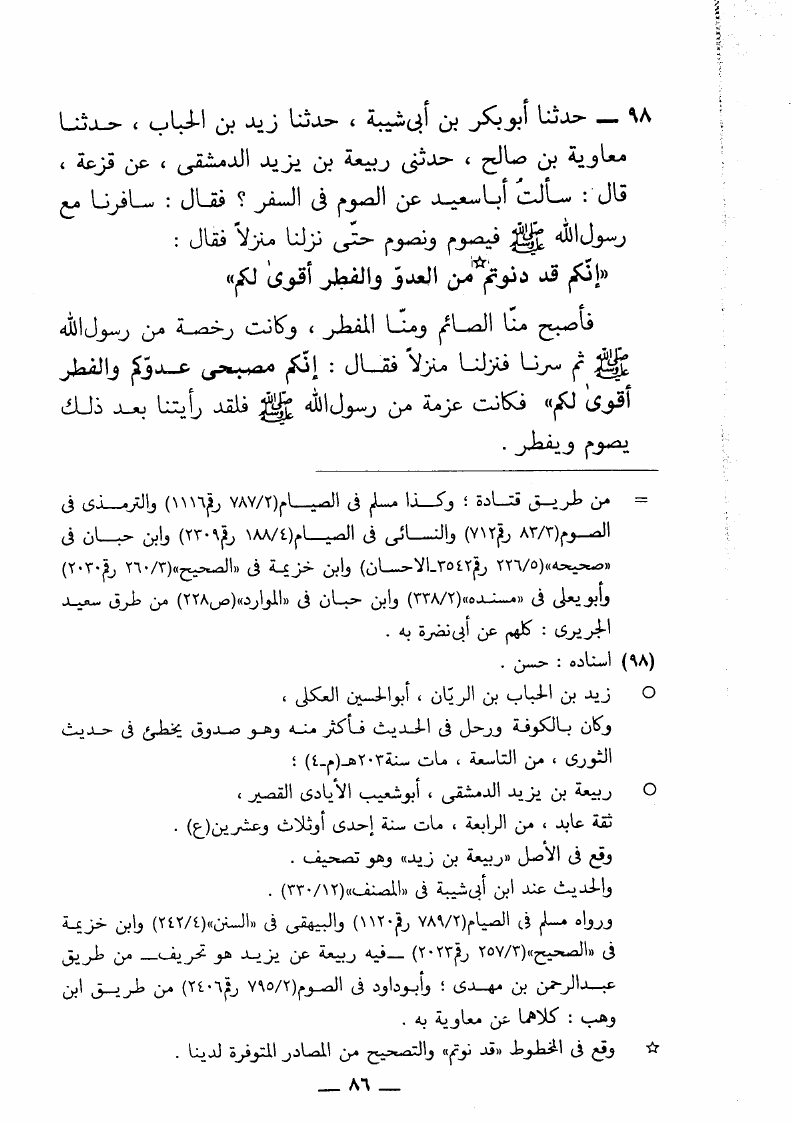 ٩٨ ـ حدثنا أبوبكر بن أبي شيبة ، حدثنا زيد بن الحباب ، حدثنا
معاوية بن صالح ، حدثنى ربيعة بن يزيد الدمشقى ، عن قزعة ،
قال : سألتُ أباسعيد عن الصوم فى السفر ؟ فقال : سافرنا مع
رسول الله ﷺ فيصوم ونصوم حتّى نزلنا منزلاً فقال :
«إنّكم قد دنوتم☆ من العدوّ والفطر أقوىٰ لكم»
فأصبح منّا الصائم ومنّا المفطر ، وكانت رخصة من رسول الله
ﷺ ثم سرنا فنزلنا منزلاً فقال : إنّكم مصبحى عدوّكم والفطر
أقوىٰ لكم» فكانت عزمة من رسول الله ﷺ فلقد رأيتنا بعد ذلك
يصوم ويفطر .
= من طريق قتادة ؛ وكذا مسلم فى الصيام(٧٨٧/٢ رقم١١١٦) والترمذى فى
الصوم(٨٣/٣ رقم٧١٢) والنسائى فى الصيام(١٨٨/٤ رقم٢٣٠٩) وابن حبان فى
«صحيحه»(٢٢٦/٥ رقم٣٥٤٢ـالاحسان) وابن خزيمة فى «الصحيح»(٢٦٠/٣ رقم٢٠٣٠)
وأبويعلى فى «مسنده»(٣٣٨/٢) وابن حبان فى «الموارد»(ص٢٢٨) من طرق سعيد
الجريرى : كلهم عن أبى نضرة به .
(٩٨) اسناده : حسن .
○ زيد بن الحباب بن الريّان ، أبوالحسين العكلى ،
وكان بالكوفة ورحل فى الحديث فأكثر منه وهو صدوق يخطئ فى حديث
الثورى ، من التاسعة ، مات سنة٢٠٣هـ(م_٤) ؛
○ ربيعة بن يزيد الدمشقى ، أبوشعيب الأيادى القصير ،
ثقة عابد ، من الرابعة ، مات سنة إحدى أوثلاث وعشرين(ع) .
وقع فى الأصل «ربيعة بن زيد» وهو تصحيف .
والحديث عند ابن أبى شيبة فى «المصنف»(٣٣٠/١٢) .
ورواه مسلم فى الصيام(٧٨٩/٢ رقم١١٢٠) والبيهقى فى «السنن»(٢٤٢/٤) وابن خزيمة
فى «الصحيح»(٢٥٧/٣ رقم٢٠٢٣) ـفيه ربيعة عن يزيد هو تحريفـ من طريق
عبدالرحمن بن مهدى ؛ وأبوداود فى الصوم(٧٩٥/٢ رقم٢٤٠٦) من طريق ابن
وهب : كلاهما عن معاوية به .
☆ وقع فى المخطوط «قد نوتم» والتصحيح من المصادر المتوفرة لدينا .
ـ ٨٦ ـ